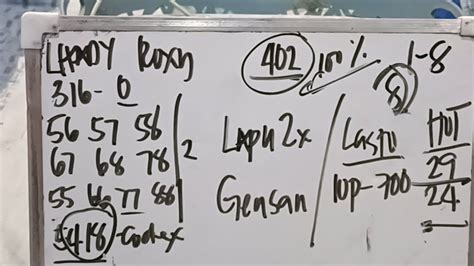 LHADY Roxy
316-0
56 57 58
67 68 78
55 66 77 88
2
5418-Codex
402 100%
1-8
8
Lapu2x
Gensan
Lasto
10p-700
HOT
29
24